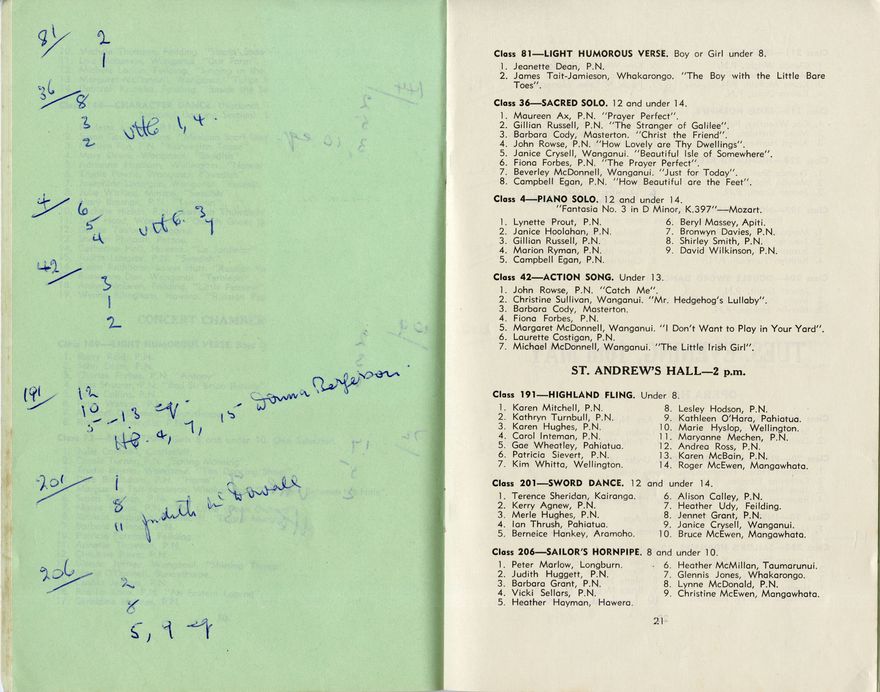 81/ 2
1
36/ 8
3 VHC 1, 4.
2
4/ 6
5 VHC. 3,
4 7
42/ 3
1
2
CONCERT CHAMBER
191/ 12
10
5-13 eq.
HC. 4, 7, 15 Donna Bergerson.
201/ 1
8
11 Judith
206/ 2
8
5, 9 eq
Class 81—LIGHT HUMOROUS VERSE. Boy or Girl under 8.
1. Jeanette Dean, P.N.
2. James Tait-Jamieson, Whakarongo. "The Boy with the Little Bare
Toes".
Class 36—SACRED SOLO. 12 and under 14.
1. Maureen Ax, P.N. "Prayer Perfect".
2. Gillian Russell, P.N. "The Stranger of Galilee".
3. Barbara Cody, Masterton. "Christ the Friend".
4. John Rowse, P.N. "How Lovely are Thy Dwellings".
5. Janice Crysell, Wanganui. "Beautiful Isle of Somewhere".
6. Fiona Forbes, P.N. "The Prayer Perfect".
7. Beverley McDonnell, Wanganui. "Just for Today".
8. Campbell Egan, P.N. "How Beautiful are the Feet".
Class 4—PIANO SOLO. 12 and under 14.
"Fantasia No. 3 in D Minor, K.397"—Mozart.
1. Lynette Prout, P.N. 6. Beryl Massey, Apiti.
2. Janice Hoolahan, P.N. 7. Bronwyn Davies, P.N.
3. Gillian Russell, P.N. 8. Shirley Smith, P.N.
4. Marion Ryman, P.N. 9. David Wilkinson, P.N.
5. Campbell Egan, P.N.
Class 42—ACTION SONG. Under 13.
1. John Rowse, P.N. "Catch Me".
2. Christine Sullivan, Wanganui. "Mr. Hedgehog's Lullaby".
3. Barbara Cody, Masterton.
4. Fiona Forbes, P.N.
5. Margaret McDonnell, Wanganui. "I Don't Want to Play in Your Yard".
6. Laurette Costigan, P.N.
7. Michael McDonnell, Wanganui. "The Little Irish Girl".
ST. ANDREW'S HALL—2 p.m.
Class 191—HIGHLAND FLING. Under 8.
1. Karen Mitchell, P.N. 8. Lesley Hodson, P.N.
2. Kathryn Turnbull, P.N. 9. Kathleen O'Hara, Pahiatua.
3. Karen Hughes, P.N. 10. Marie Hyslop, Wellington.
4. Carol Inteman, P.N. 11. Maryanne Mechen, P.N.
5. Gae Wheatley, Pahiatua. 12. Andrea Ross, P.N.
6. Patricia Sievert, P.N. 13. Karen McBain, P.N.
7. Kim Whitta, Wellington. 14. Roger McEwen, Mangawhata.
Class 201—SWORD DANCE. 12 and under 14.
1. Terence Sheridan, Kairanga. 6. Alison Calley, P.N.
2. Kerry Agnew, P.N. 7. Heather Udy, Feilding.
3. Merle Hughes, P.N. 8. Jennet Grant, P.N.
4. Ian Thrush, Pahiatua. 9. Janice Crysell, Wanganui.
5. Berneice Hankey, Aramoho. 10. Bruce McEwen, Mangawhata.
Class 206—SAILOR'S HORNPIPE. 8 and under 10.
1. Peter Marlow, Longburn. 6. Heather McMillan, Taumarunui.
2. Judith Huggett, P.N. 7. Glennis Jones, Whakarongo.
3. Barbara Grant, P.N. 8. Lynne McDonald, P.N.
4. Vicki Sellars, P.N. 9. Christine McEwen, Mangawhata.
5. Heather Hayman, Hawera.
21